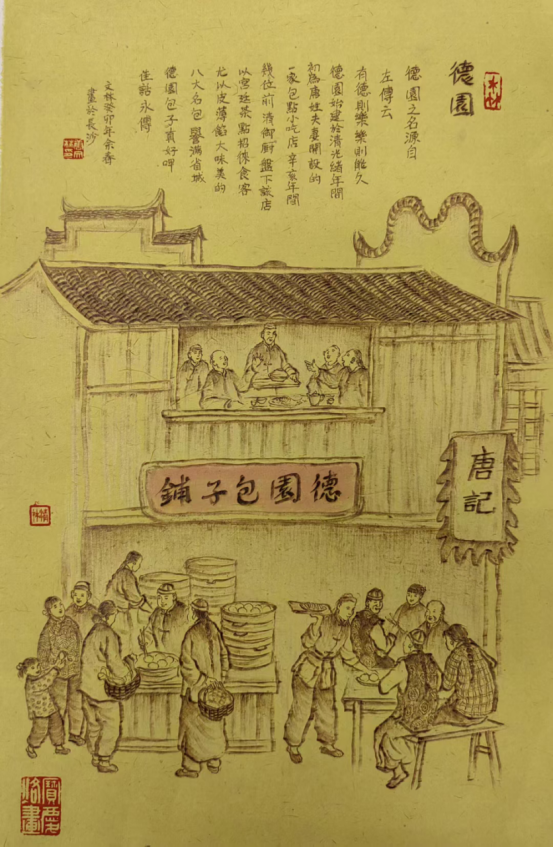 德園
德園之名源自
左傳云
有德則樂樂則能久
德園始建於清光緒年間
初為唐姓夫妻開設的
一家包點小吃店辛亥年間
幾位前清御廚盤下該店
以宮廷菜點招徠食客
尤以皮薄餡大味美的
八大名包譽滿省城
德園包子真好呷
佳話永傳
文林癸卯年余春
畫於長沙
德園包子鋪
唐記
寶慶烙畫